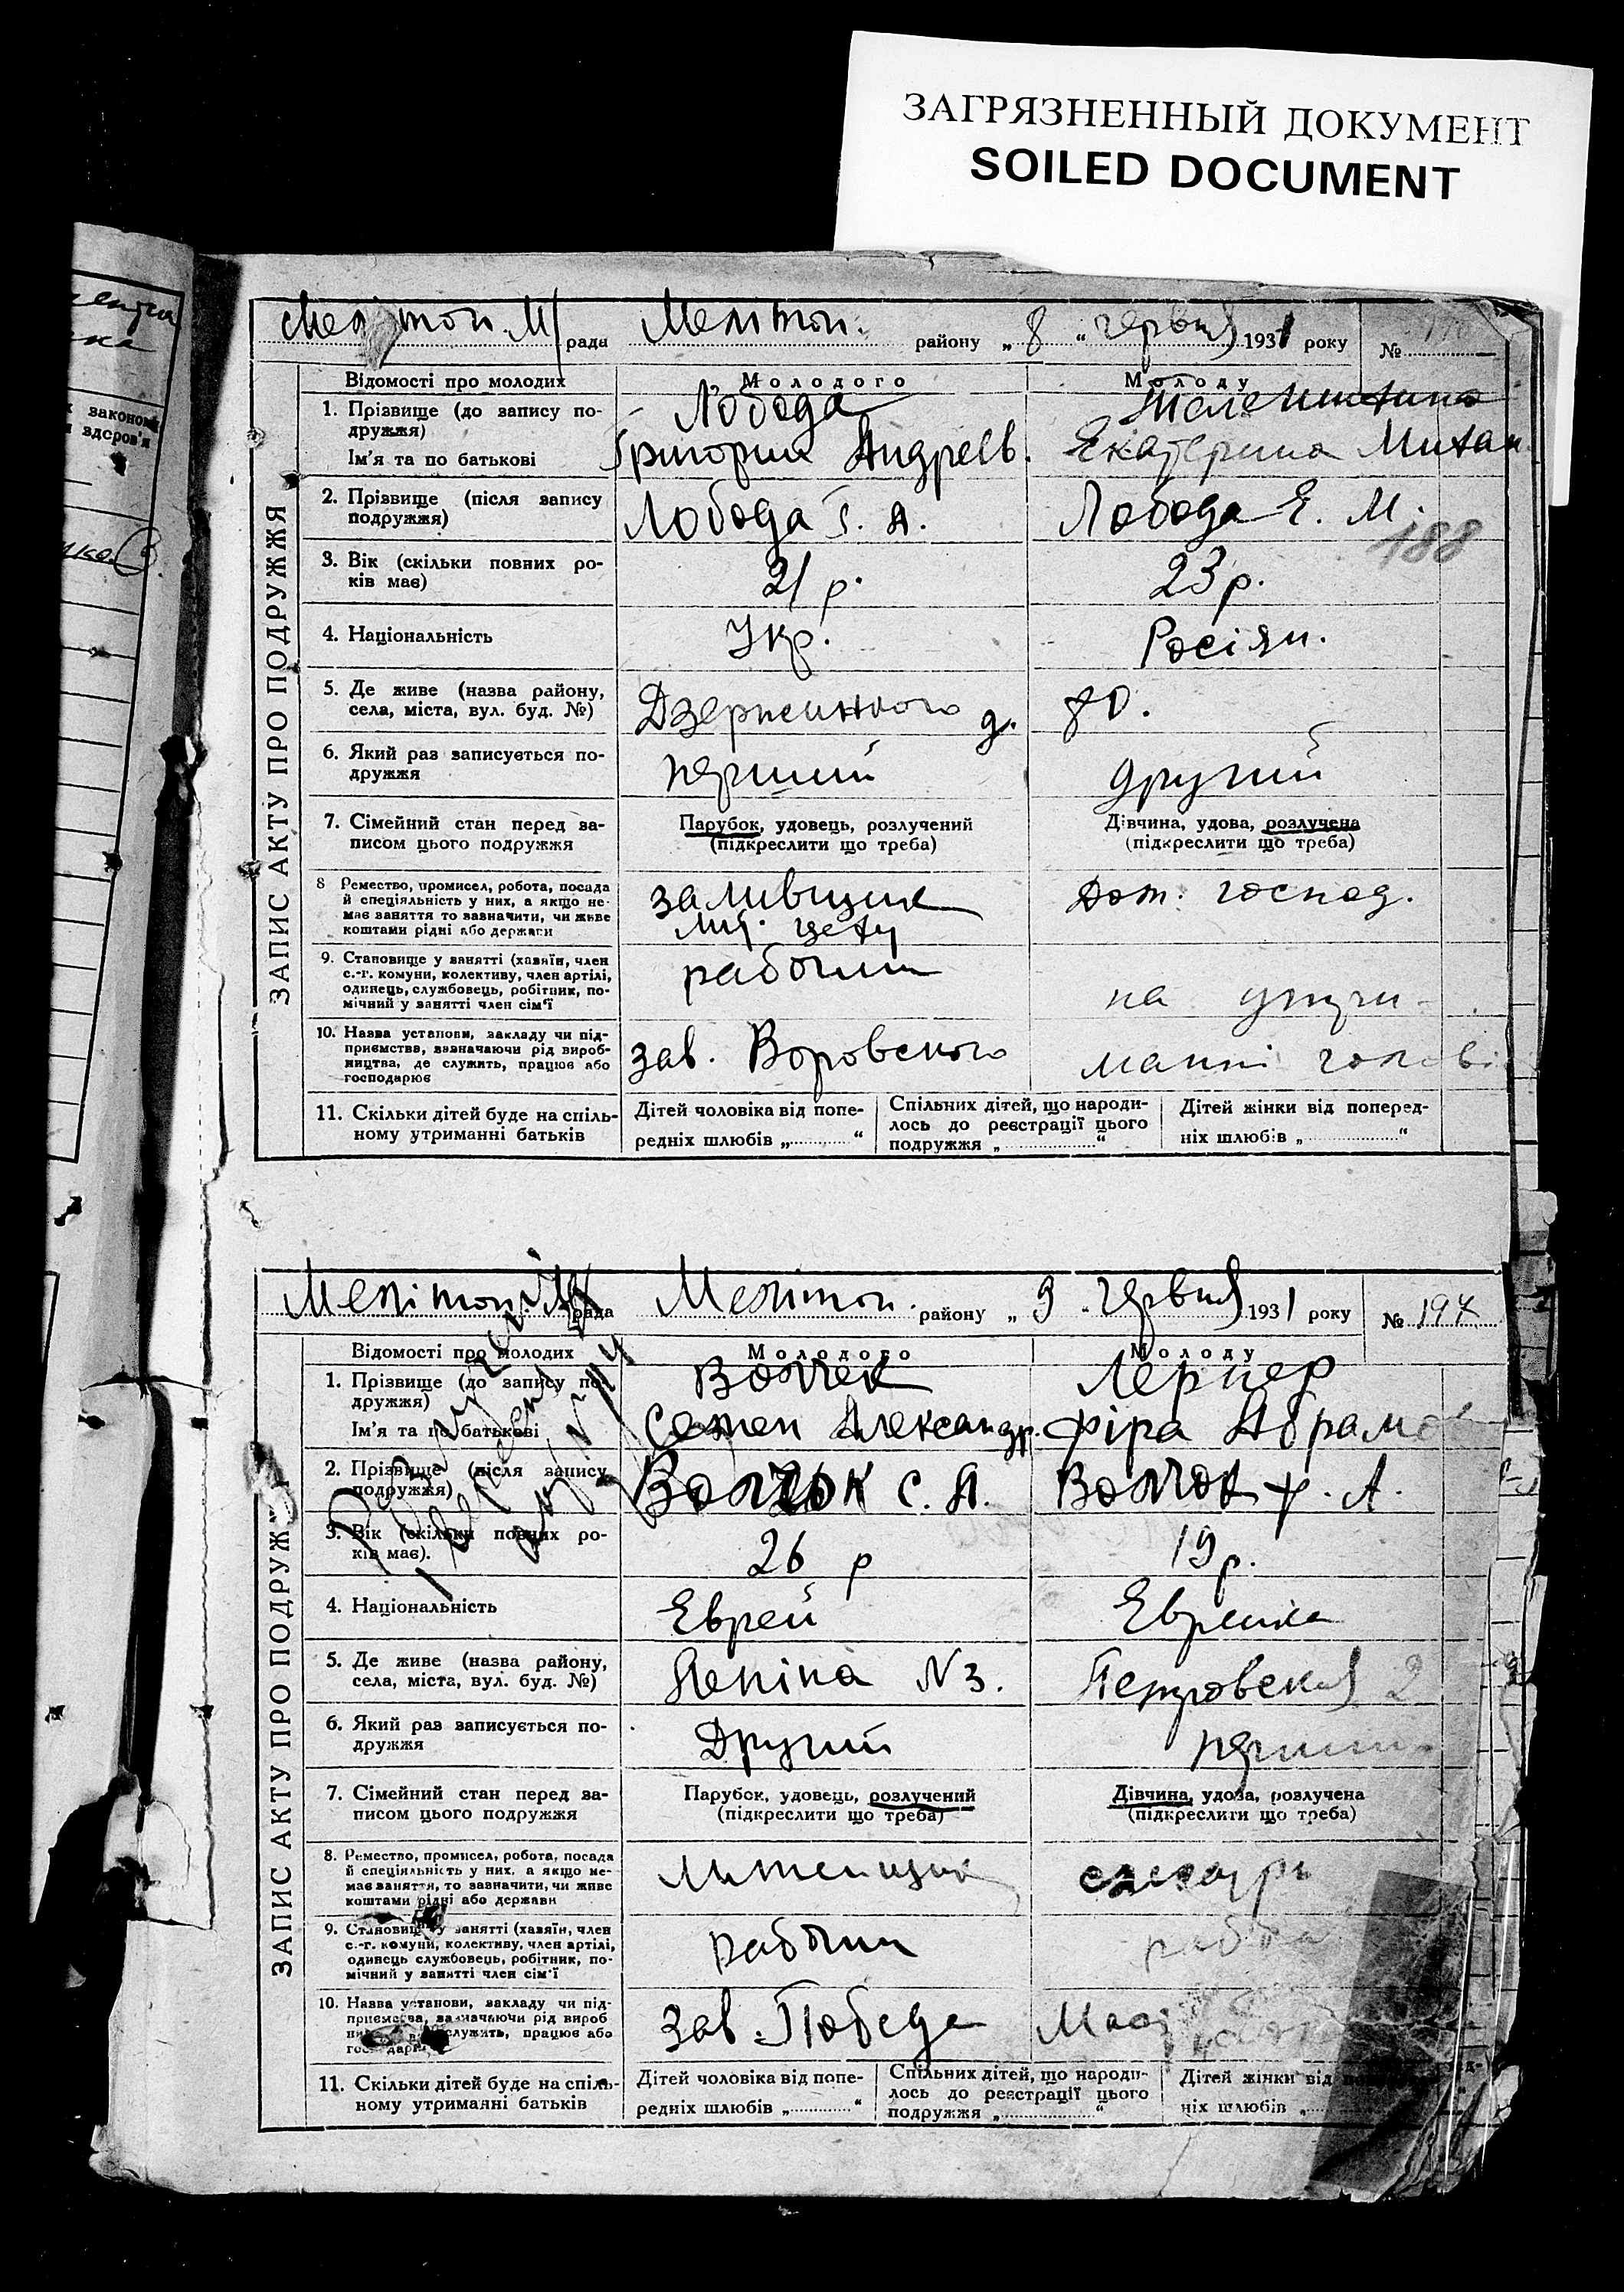 ЗАГРЯЗНЕННЫЙ ДОКУМЕНТ
SOILED DOCUMENT
рада Меліт̄оп. району „ 8 “ червня 1931 року №
ЗАПИС АКТУ ПРО ПОДРУЖЖЯ
Відомості про молодих Молодого Молоду
1. Прізвище (до запису по-
дружжя) Лобода
Ім'я та по батькові Григорий Андреев. Екатерина Михаи
2. Прізвище (після запису
подружжя) Лобода Г. А. Лобода Е. М.
188
3. Вік (скільки повних ро-
ків має) 21 р. 23 р.
4. Національність Укр. Росіян.
5. Де живе (назва району,
села, міста, вул. буд. №) Дзержинского д. 80.
6. Який раз записується по-
дружжя перший другий
7. Сімейний стан перед за-
писом цього подружжя
Парубок, удовець, розлучений
(підкреслити що треба)
Дівчина, удова, розлучена
(підкреслити що треба)
8 Ремество, промисел, робота, посада
й спеціяльність у них, а якщо не-
має заняття то зазначити, чи живе
коштами рідні або держави
заливщик
лит. цеху
дом. господ.
9. Становище у занятті (хазяїн, член
с.-г. комуни, колективу, член артілі,
одинець, службовець, робітник, по-
мічний у занятті член сім'ї
рабочий
на утри-
10. Назва установи, закладу чи під-
приємства, зазначаючи рід вироб-
ництва, де служить, працює або
господарює
зав. Воровского
манні чолові
11. Скільки дітей буде на спіль-
ному утриманні батьків
Дітей чоловіка від попе-
редніх шлюбів „ “
Спільних дітей, що народи-
лось до реєстрації цього
подружжя „ “
Дітей жінки від поперед-
ніх шлюбів „ “
Меліт̄оп. рада Меліт̄оп. району „ 9 “ червня 1931 року № 197
ЗАПИС АКТУ ПРО ПОДРУЖ
Відомості про молодих Молодого Молоду
1. Прізвище (до запису по-
дружжя) Волчек Лернер
Ім'я та по батькові Семен Александр. Фіра Абрамов
2. Прізвище (після запису
подружжя) Волчок С. А. Волчок Ф. А.
3. Вік (скільки повних ро-
ків має). 26 р 19 р.
4. Національність Еврей Еврейка
5. Де живе (назва району,
села, міста, вул. буд. №) Леніна N 3. Петровская 2
6. Який раз записується по-
дружжя Другий перший
7. Сімейний стан перед за-
писом цього подружжя
Парубок, удовець, розлучений
(підкреслити що треба)
Дівчина, удова, розлучена
(підкреслити що треба)
8. Ремество, промисел, робота, посада
й спеціяльність у них, а якщо не-
має заняття, то зазначити, чи живе
коштами рідні або держави
литейщик
слесарь
9. Становище у занятті (хазяїн, член
с.-г. комуни, колективу, член артілі,
одинець службовець, робітник, по-
мічний у занятті член сім'ї
рабочий
10. Назва установи, закладу чи під-
приємства, зазначаючи рід вироб
служить, працює або
зав. Победа
11. Скільки дітей буде на спіль-
ному утриманні батьків
Дітей чоловіка від попе-
редніх шлюбів „ “
Спільних дітей, що народи-
лось до реєстрації цього
подружжя „ “
Дітей жінки від
ніх шлюбів „